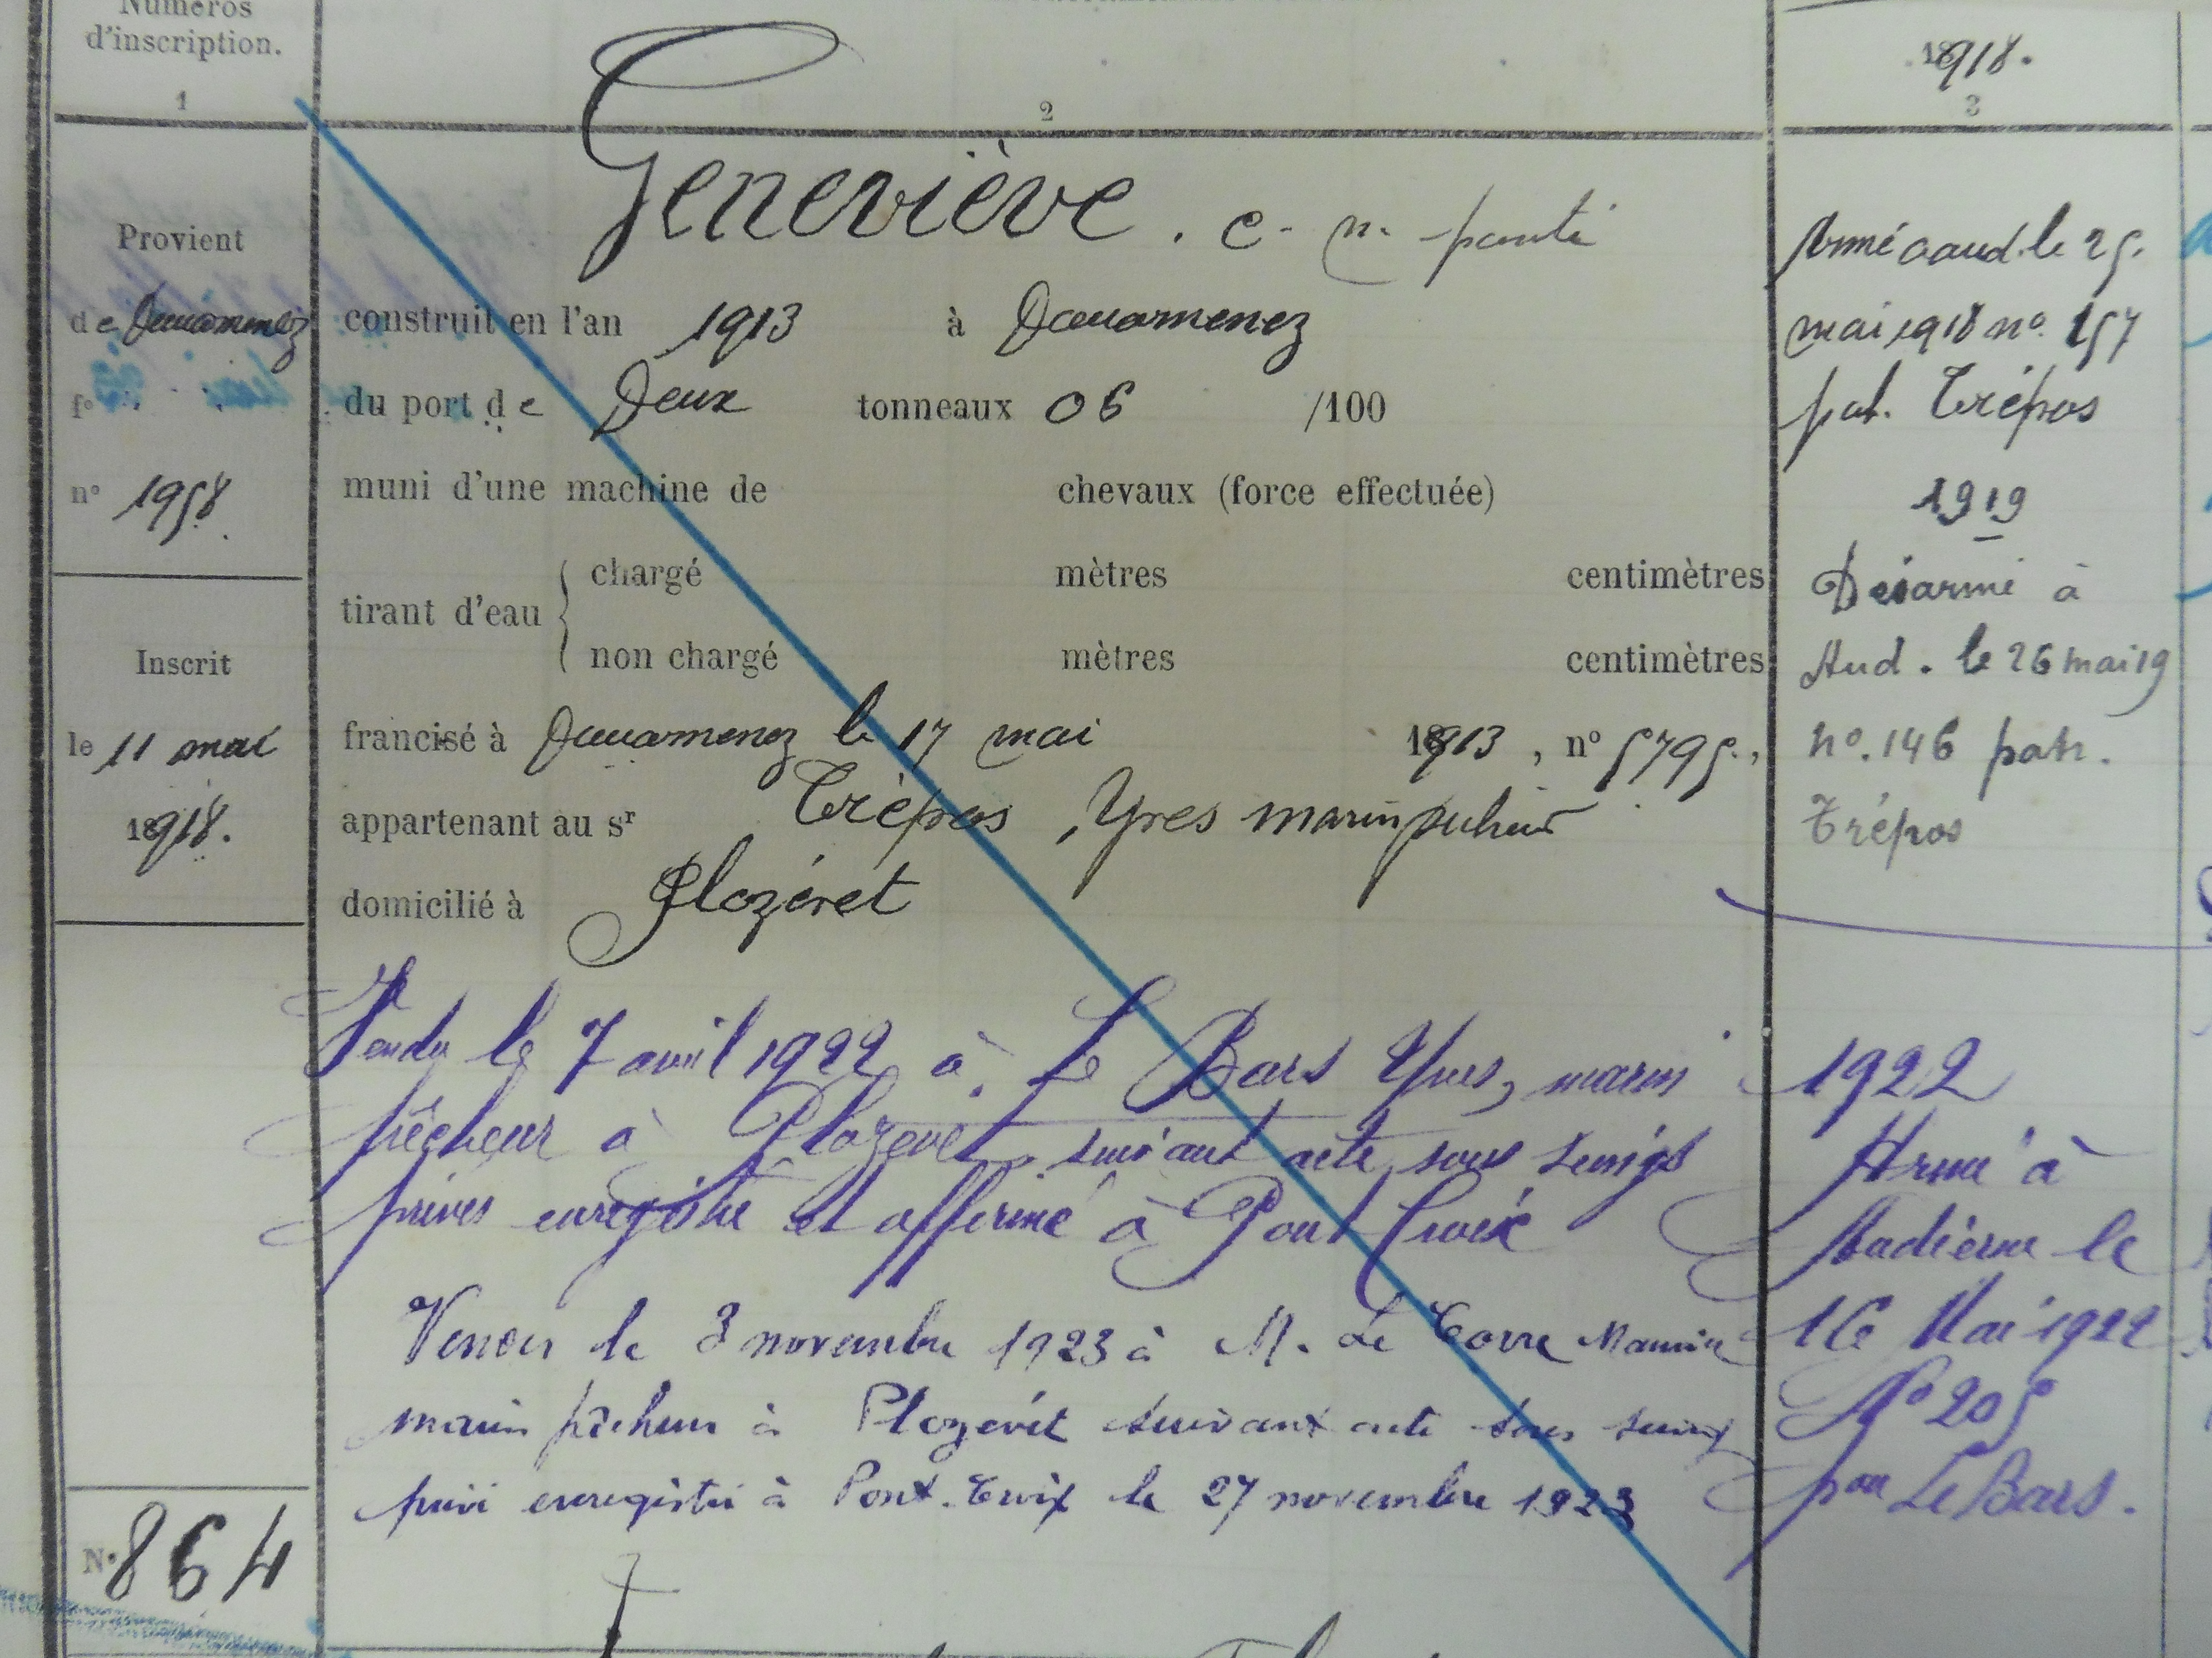 Numéros
d'inscription.
1
Provient
de Douarnenez
fo
no 1958
Inscrit
le 11 mai
1918.
No 864
2
Geneviève. c. n. ponté
construit en l'an 1913 à Douarnenez
du port de Deux tonneaux 06 /100
muni d'une machine de chevaux (force effectuée)
tirant d'eau { chargé mètres centimètres
non chargé mètres centimètres
francisé à Douarnenez le 17 mai 1913, no 5795.,
appartenant au sr Trépos, Yves marin pêcheur
domicilié à Plozévet
Vendu le 7 avril 1922 à Le Bars Yves, marin
pêcheur à Plozevet, suivant acte sous seings
privés enregistré et affirmé à Pont Croix
le 3 novembre 1923 à M. Le Corre
marin pêcheur à Plozévét suivant acte sous seing
privé enregistré à Pont-Croix le 27 novembre 1923
1918.
3
Armé à aud. le 25.
mai 1918 no. 157
pat. Trépos
1919
Désarmé à
Aud. le 26 mai 19
no. 146 patr.
Trépos
1922
Armé à
Audierne le
16 Mai 1922
No 205
par Le Bars.